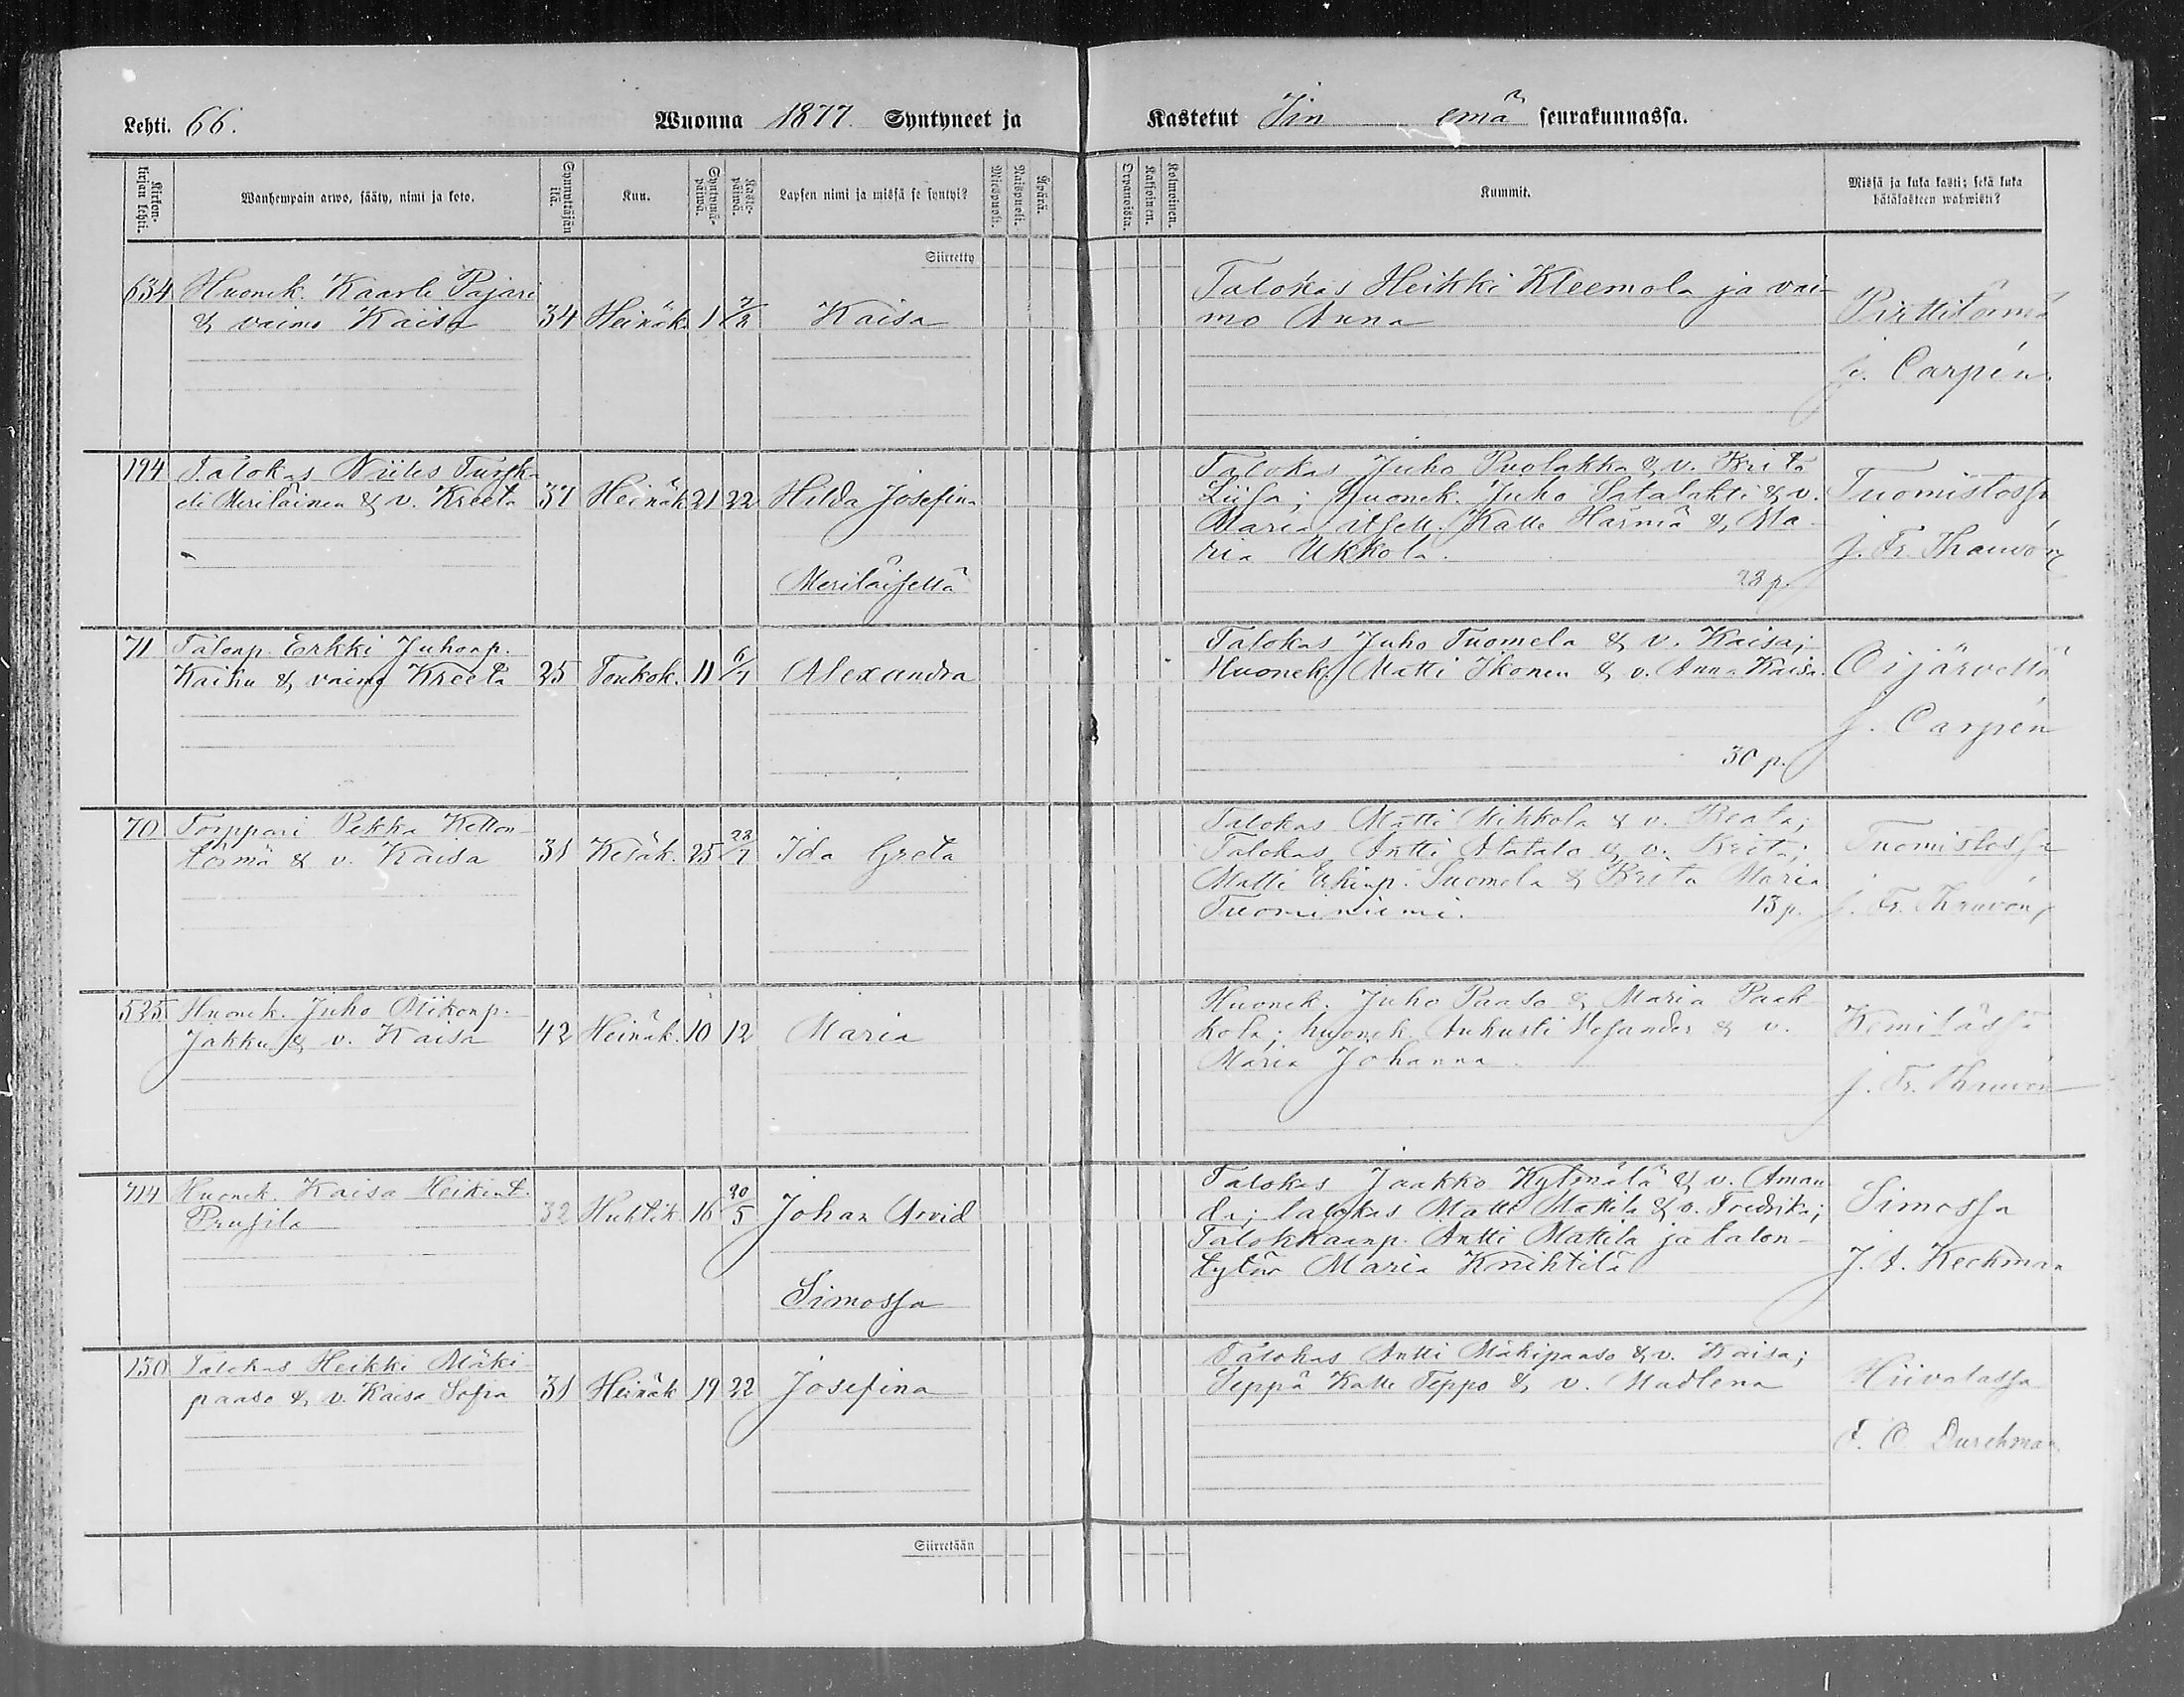 Lehti. 66. Wuonna 1877. Syntyneet ja
Kastetut Iin emä seurakunnassa.
Kirkonkirjan lehti.
Wanhempain arwo, sääty, nimi ja koto.
Synnyttäjän ikä.
Kuu.
Syntymäpäiwä.
Kastepäiwä.
Lapsen nimi ja missä se syntyi?
Miespuoli.
Naispuoli.
Awiota.
Orpanoista.
Kaksoinen.
Kolmoinen.
Kummit.
Missä ja kuka kasti; sekä kuka
hätäkasteen wahwisti?
Siirretty
634 Huonek. Kaarle Pajari
& vaimo Kaisa 34 Heinäk. 1 7/8 Kaisa
Talokas Heikki Kleemola ja vai-
mo Anna
Pirttitörmä
Carpén
194 Talokas Niiles
Meriläinen & v. Kreeta 37 Heinäk 21 22 Hilda Josefina
Meriläisellä
Talokas Juho Puolakka & v. Krita
Liisa; Huonek. Juho Satalahti & v.
Maria itsell. Kalle Härmä & Ma-
ria Ukkola.
28 p.
Tuomistossa
J. Fr. Thauvón
71 Talonp. Erkki Juhonp.
Kaihu & vaimo Kreeta 25 Toukok. 11 6/7 Alexandra
Talokas Juho Tuomela & v. Kaisa;
Huonek. Matti Ikonen & v. Anna Kaisa.
30 p.
Oijärvellä
J. Carpén
70 Torppari Pekka Kellon-
törmä & v. Kaisa 31 Kesäk. 25 23/7 Ida Greta
Talokas Matti Mikkola & v. Beata;
Talokas Antti Alatalo & v. Krita;
Matti Erkinp. Tuomela & Krita Maria
Tuominiemi. 13 p.
Tuomistossa
J. Fr. Thauvón
525 Huonek. Juho Miikonp.
Jakku & v. Kaisa 42 Heinäk. 10 12 Maria
Huonek. Juho Paaso & Maria Paak
kola; huonek. Aukusti Hefander & v.
Maria Johanna.
Kemilässä
J. Fr. Thauvón
714 Huonek. Kaisa Heikint.
Prusila 32 Huhtik 16 20/5 Johan Arvid
Simossa
Talokas Jaakko Kylmälä & v. Aman
da; talokas Matti Mattila & v. Fredrika;
Talokkaanp. Antti Mattila ja talon-
tytär Maria Knihtilä
Simossa
J. A. Heckman
130 Talokas Heikki Mäki-
paaso & v. Kaisa Sofia 31 Heinäk 19 22 Josefina
Talokas Antti Mäkipaaso & v. Kaisa;
Seppä Kalle Teppo & v. Madlena
Hiivalassa
O. Durchman
Siirretään